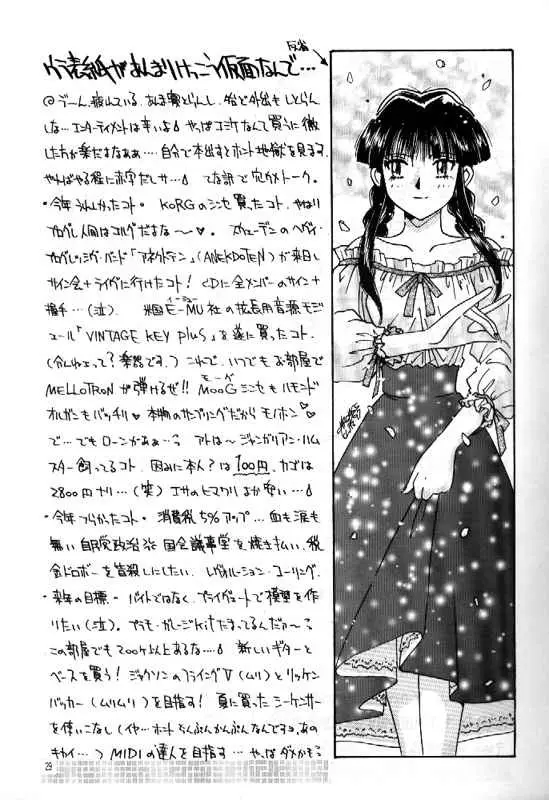 反省
ウラ表紙があんまりけっこう仮面なんで…
@う〜ん、疲れている。あまり寝とらんし、殆ど外出もしとらん
しな…エンターテイメントは辛いよ やっぱコミケなんて買うに徹
した方が楽だよなぁぁ…自分で本出すとホント地獄を見ます
やればやる程に赤字だしサ…てな訳で穴うめトーク。
・今年うれしかったコト・ KORGのシンセ買ったコト、やはり
プログレ人間はコルグだよな〜♡。スウェーデンのヘヴィ・
プログレッシヴ・バンド「アネクドテン」(ANEKDOTEN)が来日し
サイン会+ライヴに行けたコト! CDに全メンバーのサイン+
握手…(泣)。 米国E-MU社の拡張用音源モジ
イーミュー
ュール「VINTAGE KEY plus」を遂に買ったコト。
(分んねぇって?楽器です。)これで、いつでもお部屋で
MELLOTRONが弾けるぜ!! MOOGシンセもハモンド
モーグ
オルガンもバッチリ♡本物のサンプリングだからモノホン♡
で…でもローンがぁぁ…アトは〜ジャンガリアン・ハム
スター飼ってるコト。因みに本人?は100円、カゴは
2800円ナリ…(笑)エサのヒマワリより安い…
・今年つらかったコト・ 消費税5%アップ…血も涙も
無い自民党政治 国会議事堂を焼き払い、税
金ドロボーを皆殺しにしたい。レヴォルーション・コーリング。
・来年の目標・ バイトではなく、プライヴェートで模型を作
りたい(泣)。プラモ・ガレージKitたまってるんだァ〜
この部屋でも200ケ以上あるな…新しいギターと
ベースを買う!ジャクソンのフライングV(ムリ)とリッケン
バッカー(ムリムリ)を目指す!夏に買ったシーケンサー
を使いこなし(イヤ…ホントちんぷんかんぷんなんですョ、あの
キカイ…)MIDIの達人を目指す…やっぱダメかも
29